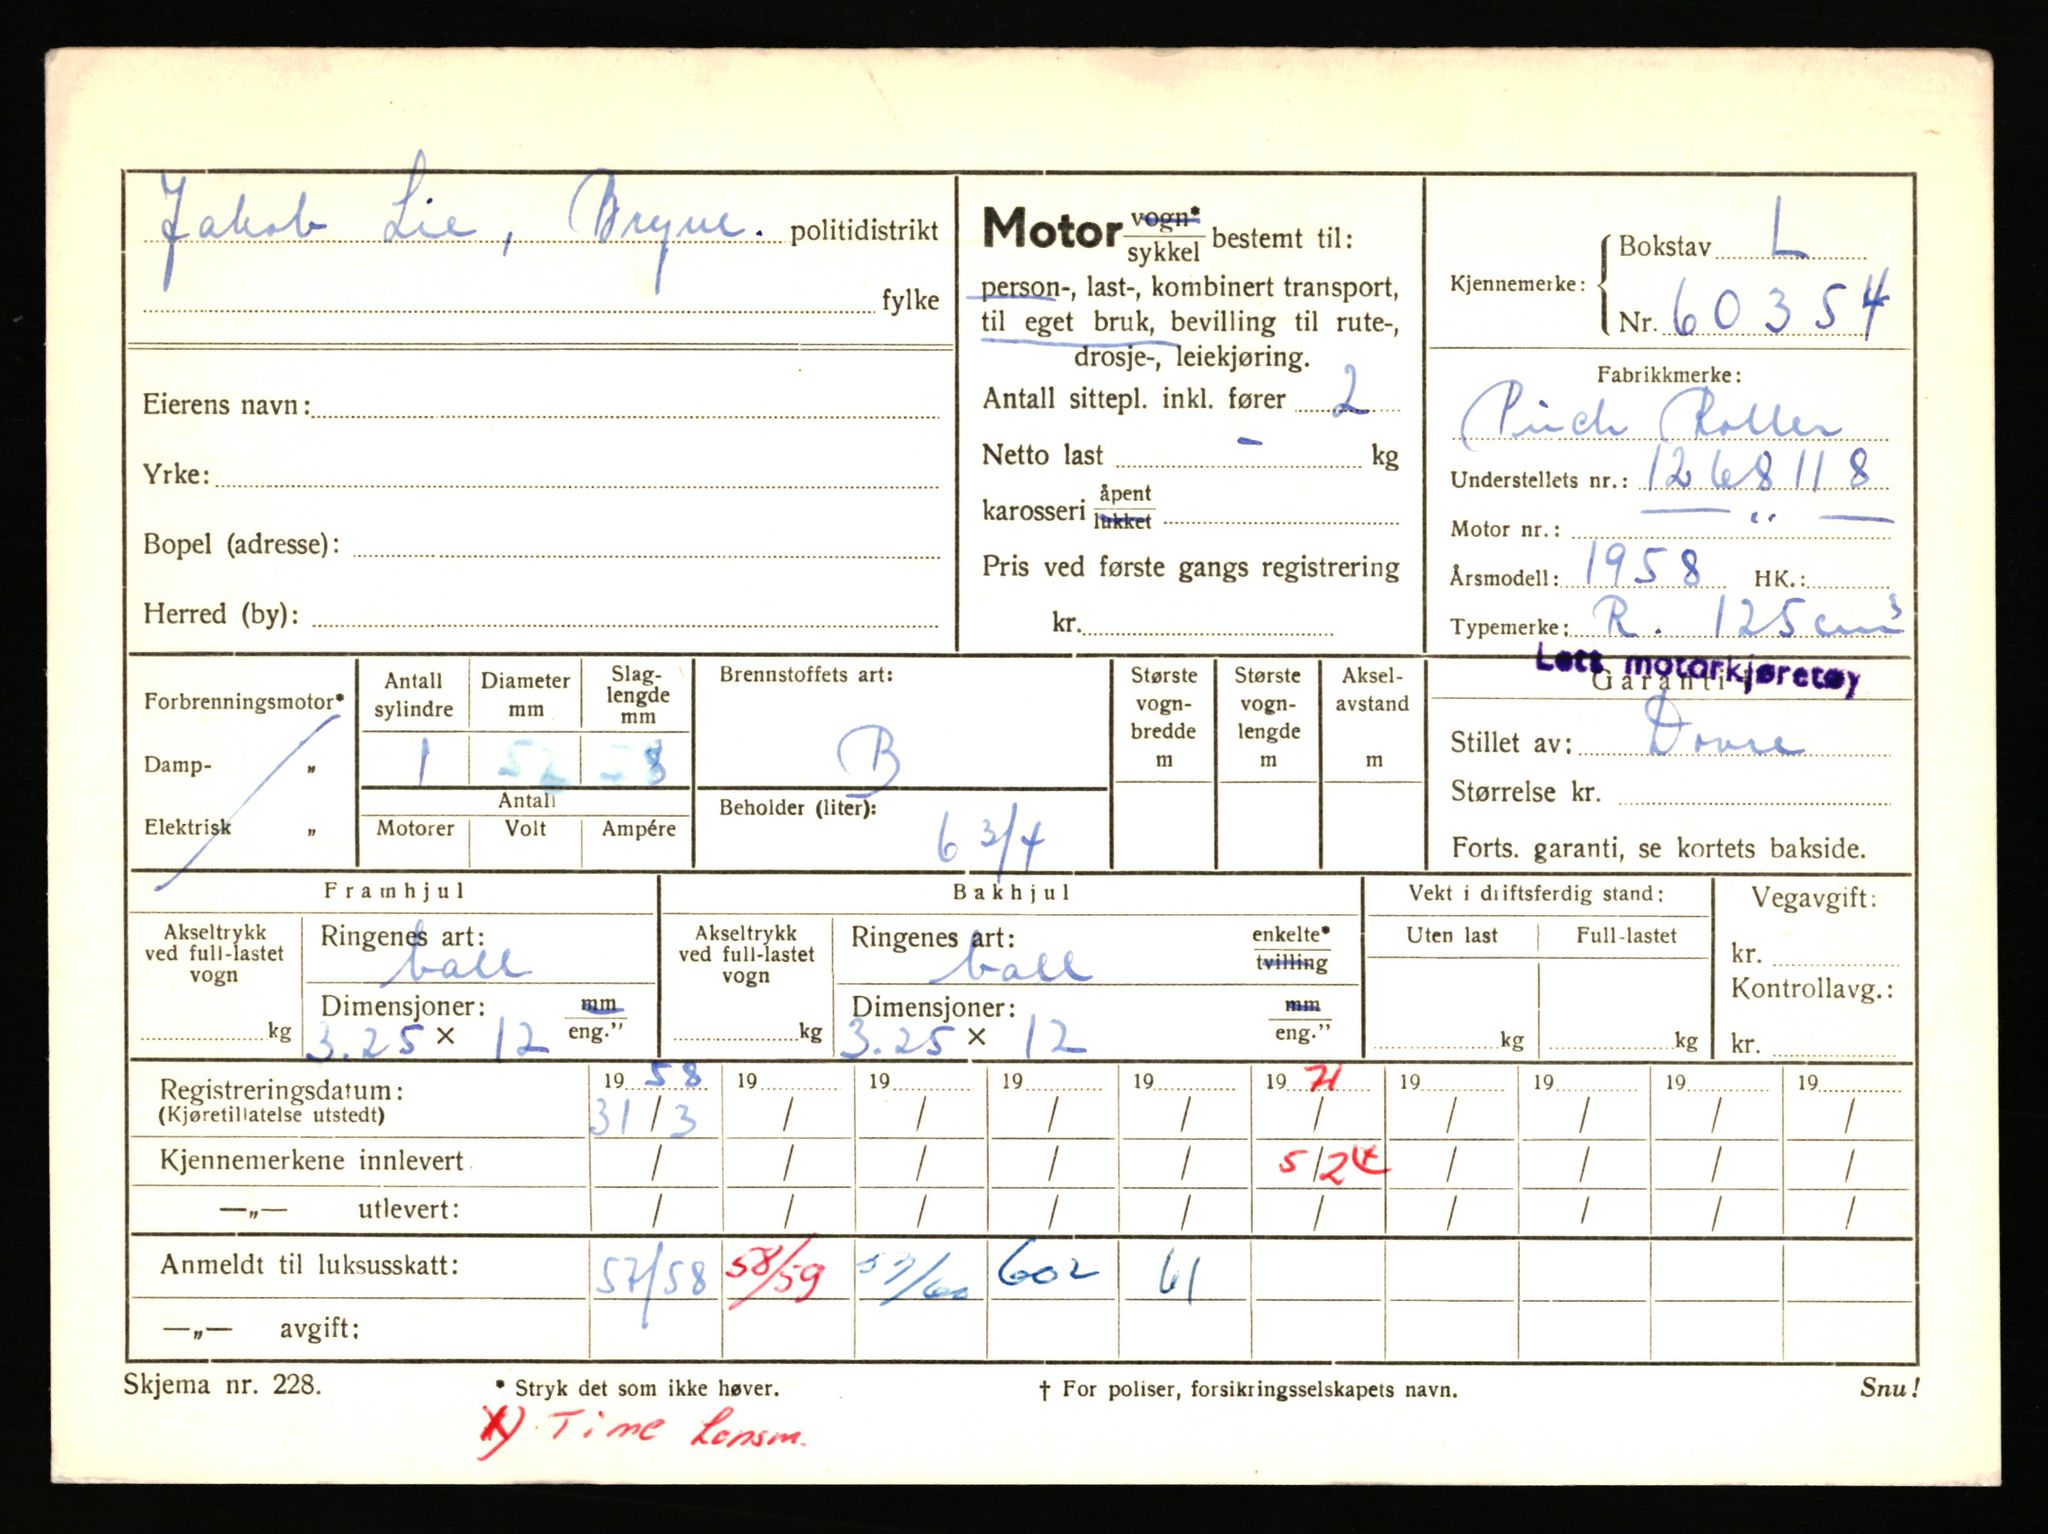 Jakob Lie, Bryne. politidistrikt
fylke
Eierens navn:
Yrke:
Bopel (adresse):
Herred (by):
Motor vogn*/sykkel bestemt til:
person-, last-, kombinert transport,
til eget bruk, bevilling til rute-,
drosje-, leiekjøring.
Antall sittepl. inkl. fører 2
Netto last - kg
karosseri åpent/lukket
Pris ved første gangs registrering
kr.
Kjennemerke: Bokstav L
Nr. 60354
Fabrikkmerke:
Puch Roller
Understellets nr.: 1268118
Motor nr.: — „ —
Årsmodell: 1958 HK.:
Typemerke: R. 125 cm³
Lett motorkjøretøy
Garanti †
Stillet av: Dovre
Størrelse kr.
Forts. garanti, se kortets bakside.
Forbrenningsmotor*
Damp- „
Elektrisk „
Antall sylindre
Diameter mm
Slag-lengde mm
1 52 58
Antall
Motorer Volt Ampére
Brennstoffets art:
B
Beholder (liter):
6 3/4
Største vogn-bredde m
Største vogn-lengde m
Aksel-avstand m
Framhjul
Akseltrykk ved full-lastet vogn
kg
Ringenes art:
ball
Dimensjoner: mm/eng.”
3.25 × 12
Bakhjul
Akseltrykk ved full-lastet vogn
kg
Ringenes art: enkelte*/tvilling
ball
Dimensjoner: mm/eng.”
3.25 × 12
Vekt i driftsferdig stand:
Uten last Full-lastet
kg kg
Vegavgift:
kr.
Kontrollavg.:
kr.
Registreringsdatum: 19 58 19 19 19 19 19 71 19 19 19 19
(Kjøretillatelse utstedt) 31/3 / / / / / / / / /
Kjennemerkene innlevert / / / / / 5/2 x / / / /
—„— utlevert: / / / / / / / / / /
Anmeldt til luksusskatt: 57/58 58/59 59/60 602 61
—„— avgift:
Skjema nr. 228. * Stryk det som ikke høver. † For poliser, forsikringsselskapets navn. Snu!
x) Time Lensm.